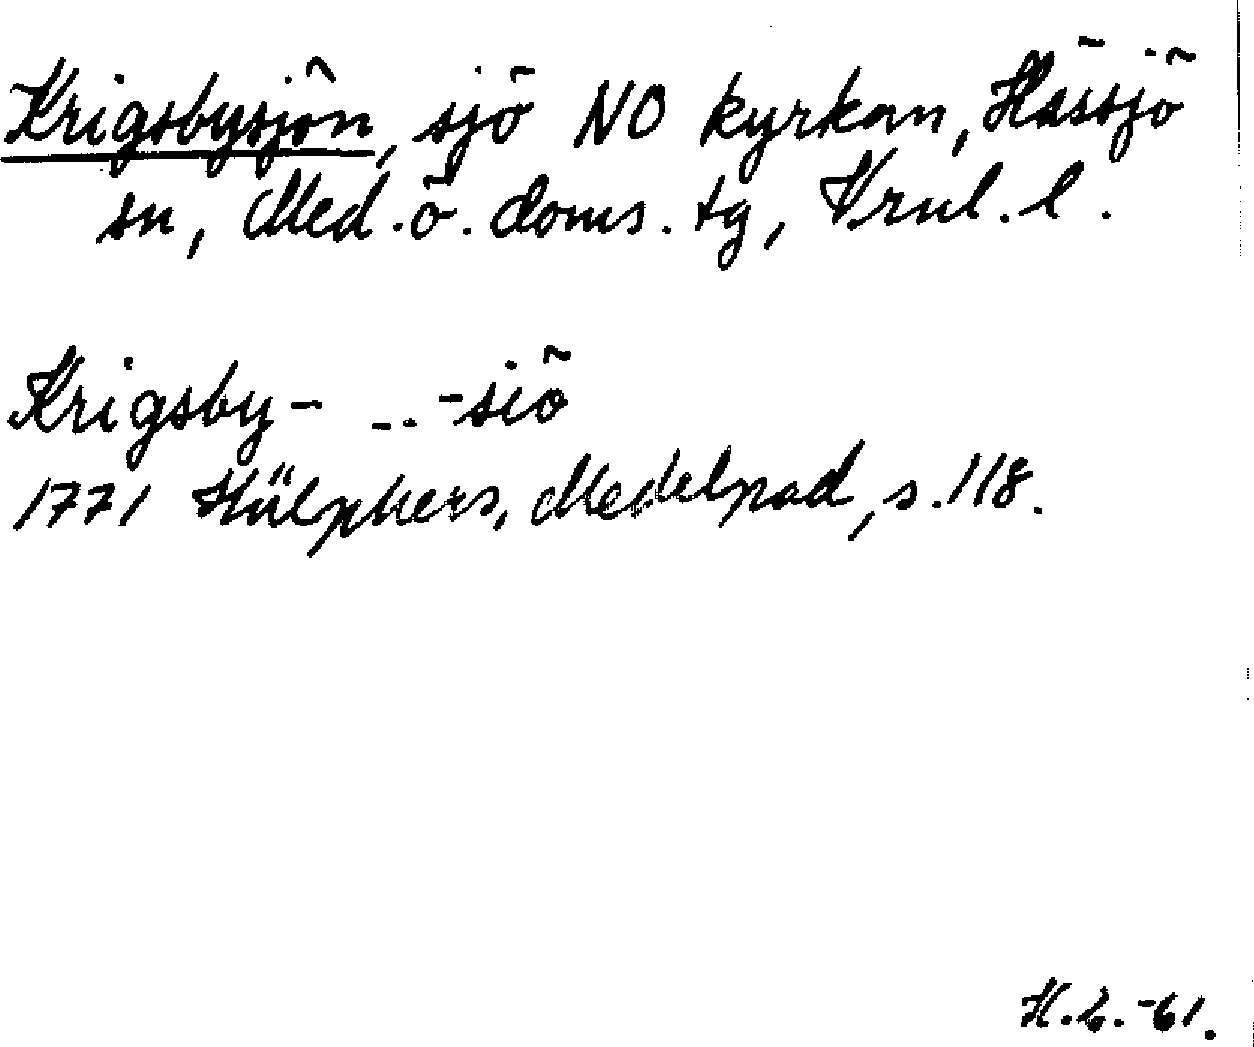 Krigsbysjön, sjö NO kyrkan, Hässjö
sn, Med. ö. doms. tg, Vrnl. l.
Krigsby- _.. -siö
1771 Hülphers, Medelpad, s. 118.
H.L.-61.